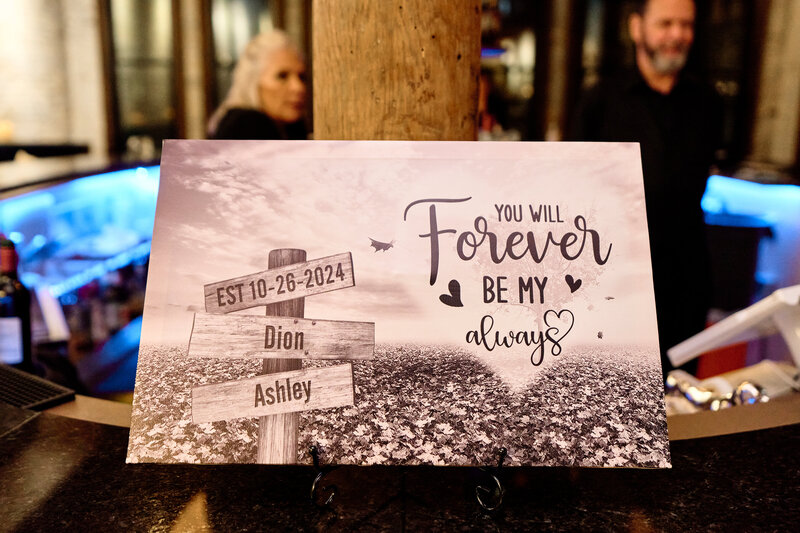 EST 10-26-2024
Dion
Ashley
YOU WILL
Forever
BE MY
always